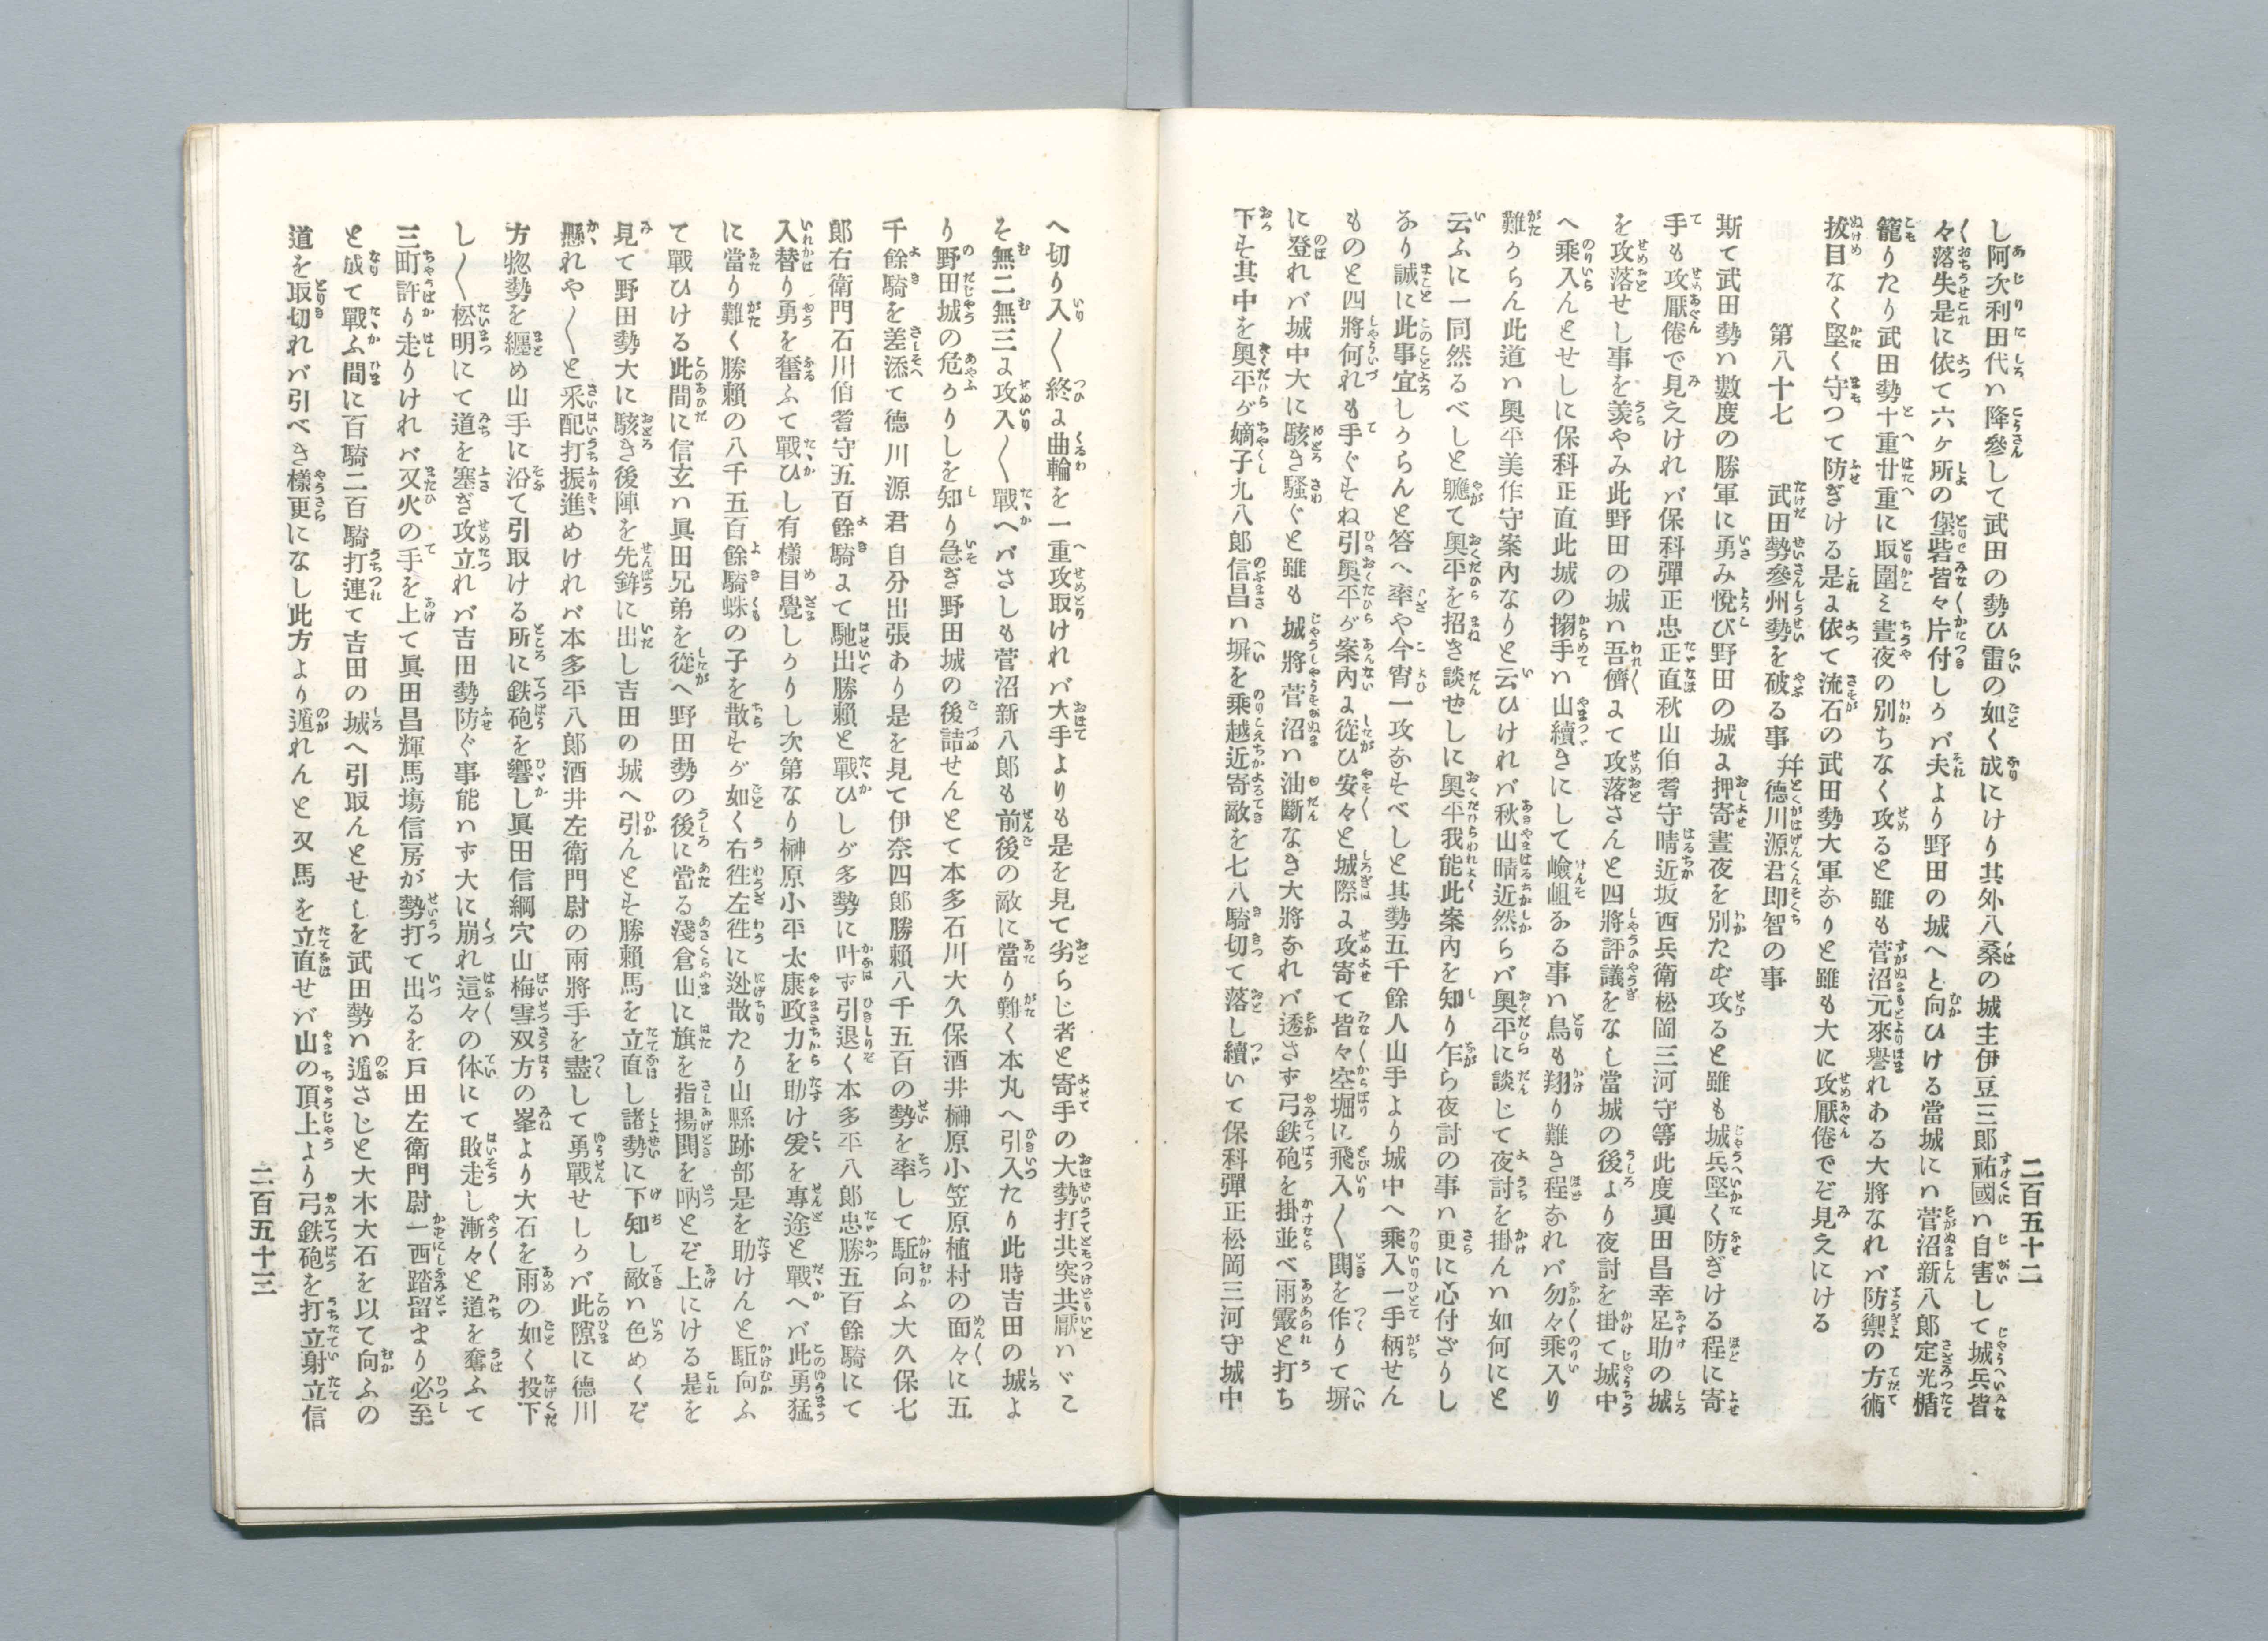 し阿次利田代ハ降參して武田の勢ひ雷の如く成にけり其外八桑の城主伊豆三郎祐國ハ自害して城兵皆
々落失是に依て六ケ所の堡砦皆々片付しかバ夫より野田の城へと向ひける當城にハ菅沼新八郎定光楯
籠りたり武田勢十重廿重に取圍ミ晝夜の別ちなく攻ると雖も菅沼元來譽れある大將なれバ防禦の方術
拔目なく堅く守つて防ぎける是に依て流石の武田勢大軍なりと雖も大に攻厭倦でぞ見えにける
第八十七　武田勢參州勢を破る事　幷德川源君即智の事
斯て武田勢ハ數度の勝軍に勇み悅び野田の城に押寄晝夜を別たず攻ると雖も城兵堅く防ぎける程に寄
手も攻厭倦で見えけれバ保科彈正忠正直秋山伯耆守晴近坂西兵衛松岡三河守等此度眞田昌幸足助の城
を攻落せし事を羨やみ此野田の城ハ吾儕にて攻落さんと四將評議をなし當城の後より夜討を掛て城中
へ乘入んとせしに保科正直此城の搦手ハ山續きにして嶮岨ある事ハ鳥も翔り難き程なれバ勿々乘入り
難からん此道ハ奧平美作守案內なりと云ひけれバ秋山晴近然らバ奧平に談じて夜討を掛んハ如何にと
云ふに一同然るべしと軈て奧平を招き談ぜしに奧平我能此案內を知り乍ら夜討の事ハ更に心付ざりし
なり誠に此事宜しからんと答へ率や今宵一攻なすべしと其勢五千餘人山手より城中へ乘入一手柄せん
ものと四將何れも手ぐすね引奧平が案內に從ひ安々と城際に攻寄て皆々空堀に飛入〱鬨を作りて塀
に登れバ城中大に駭き騷ぐと雖も城將菅沼ハ油斷なき大將なれバ透さず弓鉄砲を掛並べ雨霰と打ち
下す其中を奧平が嫡子九八郎信昌ハ塀を乘越近寄敵を七八騎切て落し續いて保科彈正松岡三河守城中
二百五十二
へ切り入〱終に曲輪を一重攻取けれバ大手よりも是を見て劣らじ者と寄手の大勢打共突共厭ハヾこ
そ無二無三に攻入〱戰へバさしも菅沼新八郎も前後の敵に當り難く本丸へ引入たり此時吉田の城よ
り野田城の危かりしを知り急ぎ野田城の後詰せんとて本多石川大久保酒井榊原小笠原植村の面々に五
千餘騎を差添て德川源君自分出張あり是を見て伊奈四郎勝賴八千五百の勢を率して駈向ふ大久保七
郎右衛門石川伯耆守五百餘騎にて馳出勝賴と戰ひしが多勢に叶ず引退く本多平八郎忠勝五百餘騎にて
入替り勇を奮ふて戰ひし有樣目覺しかりし次第なり榊原小平太康政力を助け爰を專途と戰へバ此勇猛
に當り難く勝賴の八千五百餘騎蛛の子を散すが如く右徃左徃に迯散たり山縣跡部是を助けんと駈向ふ
て戰ひける此間に信玄ハ眞田兄弟を從へ野田勢の後に當る淺倉山に旗を指揚鬨を吶とぞ上にける是を
見て野田勢大に駭き後陣を先鉾に出し吉田の城へ引んとす勝賴馬を立直し諸勢に下知し敵ハ色めくぞ
懸れや〱と采配打振進めけれバ本多平八郎酒井左衛門尉の兩將手を盡して勇戰せしかバ此隙に德川
方惣勢を纒め山手に沿て引取ける所に鉄砲を響し眞田信綱穴山梅雪双方の峯より大石を雨の如く投下
し〱松明にて道を塞ぎ攻立れバ吉田勢防ぐ事能ハず大に崩れ這々の体にて敗走し漸々と道を奪ふて
三町許り走りけれバ又火の手を上て眞田昌輝馬塲信房が勢打て出るを戸田左衛門尉一西踏留まり必至
と成て戰ふ間に百騎二百騎打連て吉田の城へ引取んとせしを武田勢ハ遁さじと大木大石を以て向ふの
道を取切れバ引べき樣更になし此方より遁れんと又馬を立直せバ山の頂上より弓鉄砲を打立射立信
二百五十三